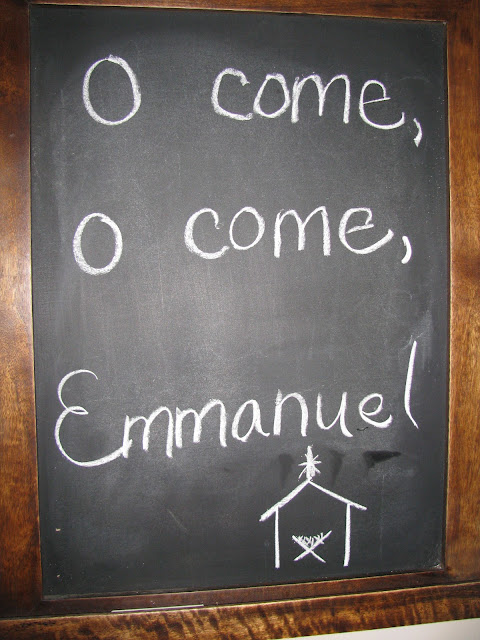 O come,
O come,
Emmanuel